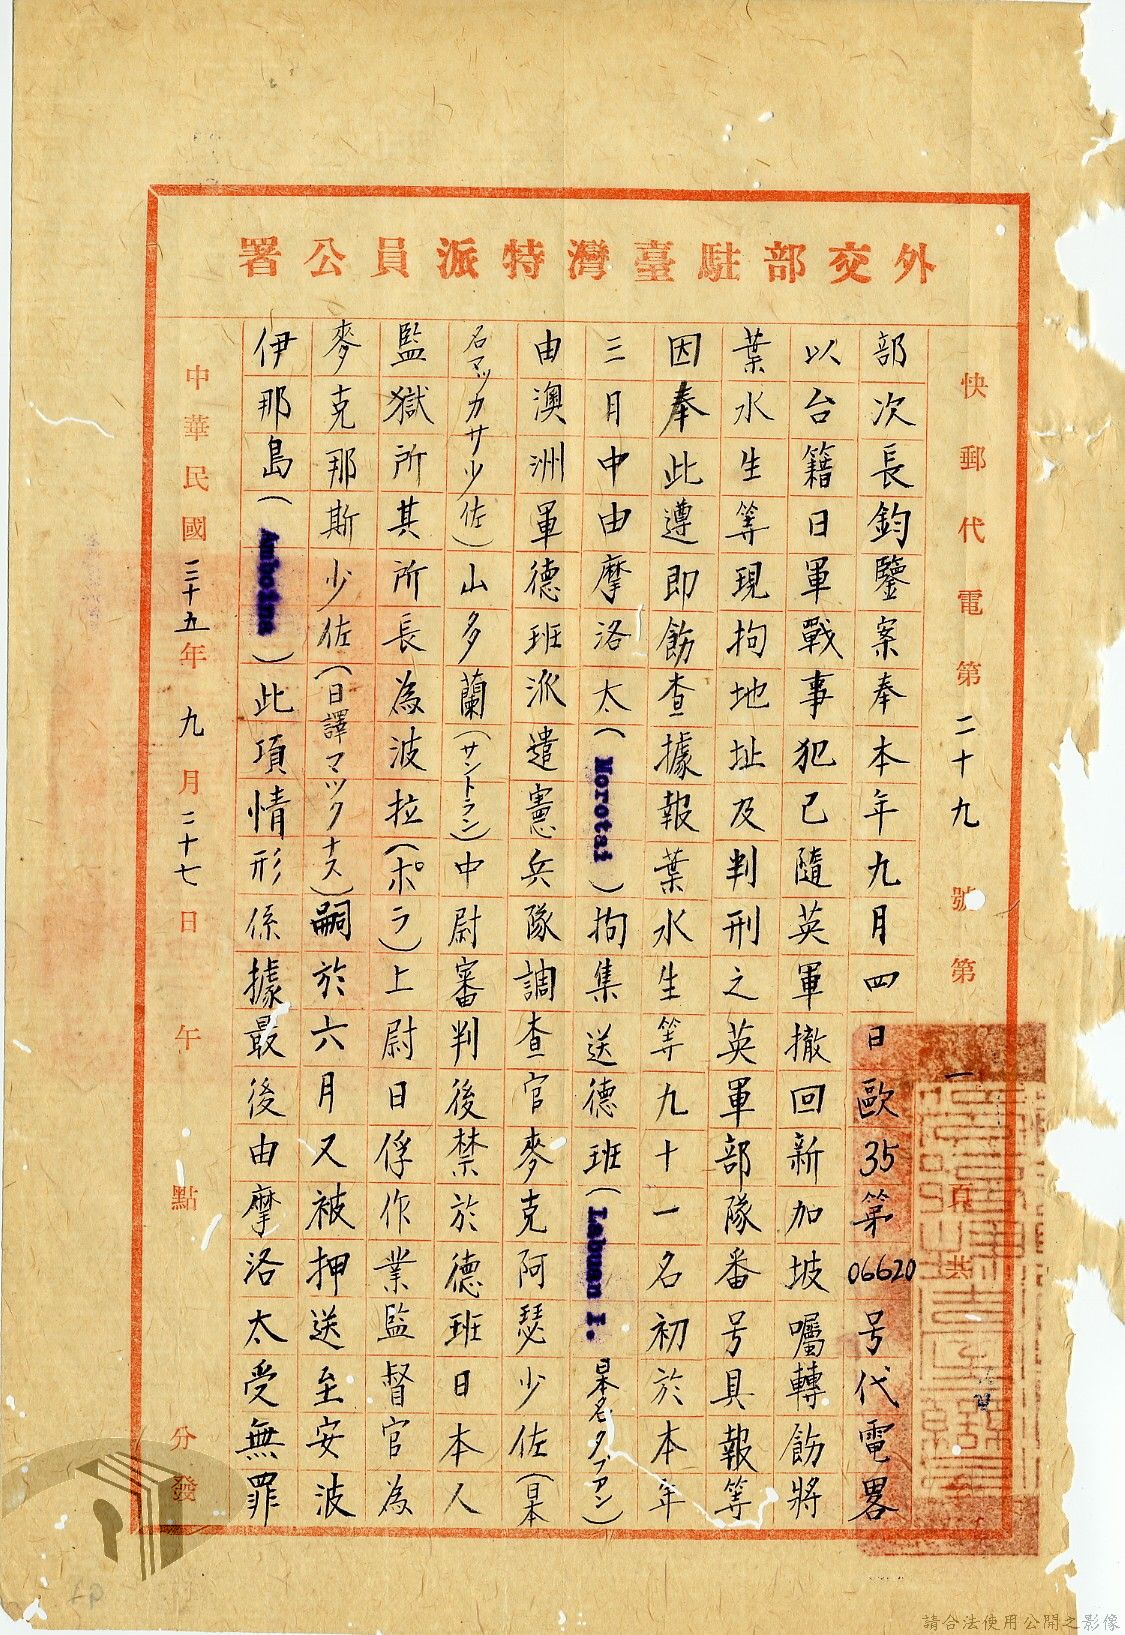 外交部駐臺灣特派員公署
快郵代電第二十九號第一頁共
部次長鈞鑒案奉本年九月四日歐35第06620号代電畧
以台籍日軍戰事犯已隨英軍撤回新加坡囑轉飭將
葉水生等現拘地址及判刑之英軍部隊番号具報等
因奉此遵即飭查據報葉水生等九十一名初於本年
三月中由摩洛太(Morotai)拘集送德班(Labuan I.日本名タブアン)
由澳洲軍德班派遣憲兵隊調查官麥克阿瑟少佐(日本
名マッカサ少佐)山多蘭(サントラン)中尉審判後禁於德班日本人
監獄所其所長為波拉(ポラ)上尉日俘作業監督官為
麥克那斯少佐(日譯マックナス)嗣於六月又被押送至安波
伊那島(Amboina)此項情形係據最後由摩洛太受無罪
中華民國三十五年九月二十七日午點分發
請合法使用公開之影像